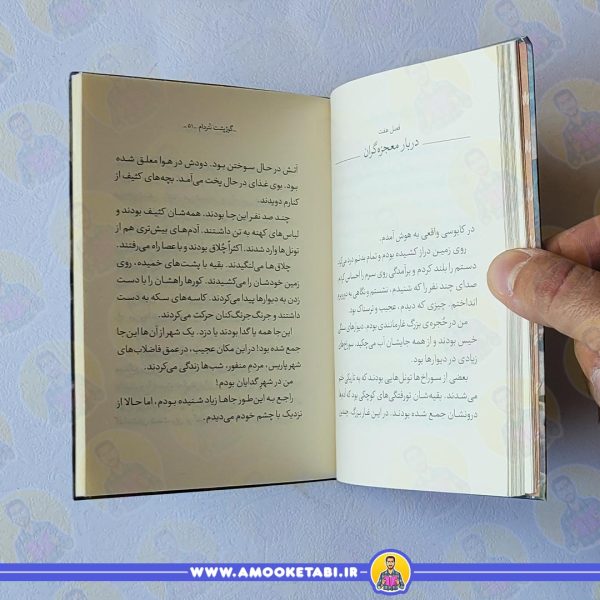 فصل هفت
دربار معجزه‌گران
در کابوسی واقعی به هوش آمدم.
روی زمین دراز کشیده بودم و تمام بدنم درد می‌کرد.
دستم را بلند کردم و برآمدگی روی سرم را احساس کردم.
صدای چند نفر را که شنیدم، نشستم و نگاهی به دوروبرم
انداختم. چیزی که دیدم، عجیب و ترسناک بود.
من در حُجره‌ی بزرگ غارمانندی بودم. دیوارهای سنگی
خیس بودند و از همه جایشان آب می‌چکید. سوراخ‌های
زیادی در دیوارها بود.
بعضی از سوراخ‌ها تونل‌هایی بودند که به تاریکی ختم
می‌شدند. بقیه‌شان تورفتگی‌های کوچکی بودند که آدم‌ها
درونشان جمع شده بودند. در این غار بزرگ، چندین
ـ گوژپشت نتردام ـ ۵۱ ـ
آتش در حال سوختن بود. دودش در هوا معلق شده
بود. بوی غذای در حال پخت می‌آمد. بچه‌های کثیف از
کنارم دویدند.
چند صد نفر این‌جا بودند. همه‌شان کثیف بودند و
لباس‌های کهنه به تن داشتند. آدم‌های بیش‌تری هم از
تونل‌ها وارد شدند. اکثراً چُلاق بودند و با عصا راه می‌رفتند.
چلاق‌ها می‌لنگیدند. بقیه با پشت‌های خمیده، روی
زمین خودشان را می‌کشیدند. کورها راهشان را با دست
زدن به دیوارها پیدا می‌کردند. کاسه‌های سکه به دست
داشتند و جرنگ‌جرنگ‌کنان حرکت می‌کردند.
این‌جا همه یا گدا بودند یا دزد. یک شهر از آن‌ها این‌جا
جمع شده بود! در این مکان عجیب، در عمق فاضلاب‌های
شهر پاریس، مردم منفور، شب‌ها زندگی می‌کردند.
من در شهر گدایان بودم!
راجع به این‌طور جاها زیاد شنیده بودم، اما حالا از
نزدیک با چشم خودم می‌دیدم.
WWW.AMOOKETABI.IR